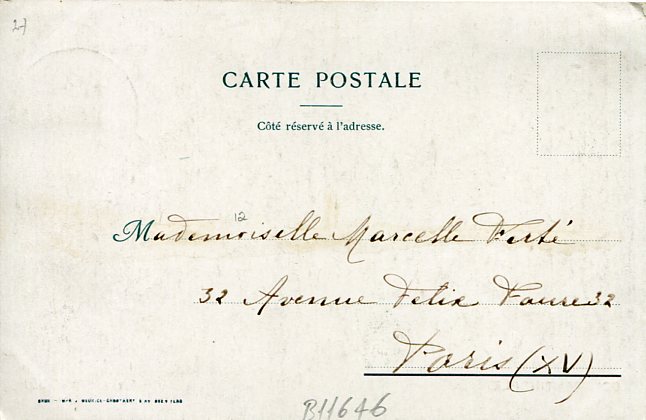 2-)
CARTE POSTALE
Côté réservé à l'adresse.
12
Mademoiselle Marcelle Ferté
32 Avenue Felix Faure 32
Paris (XV)
B11646